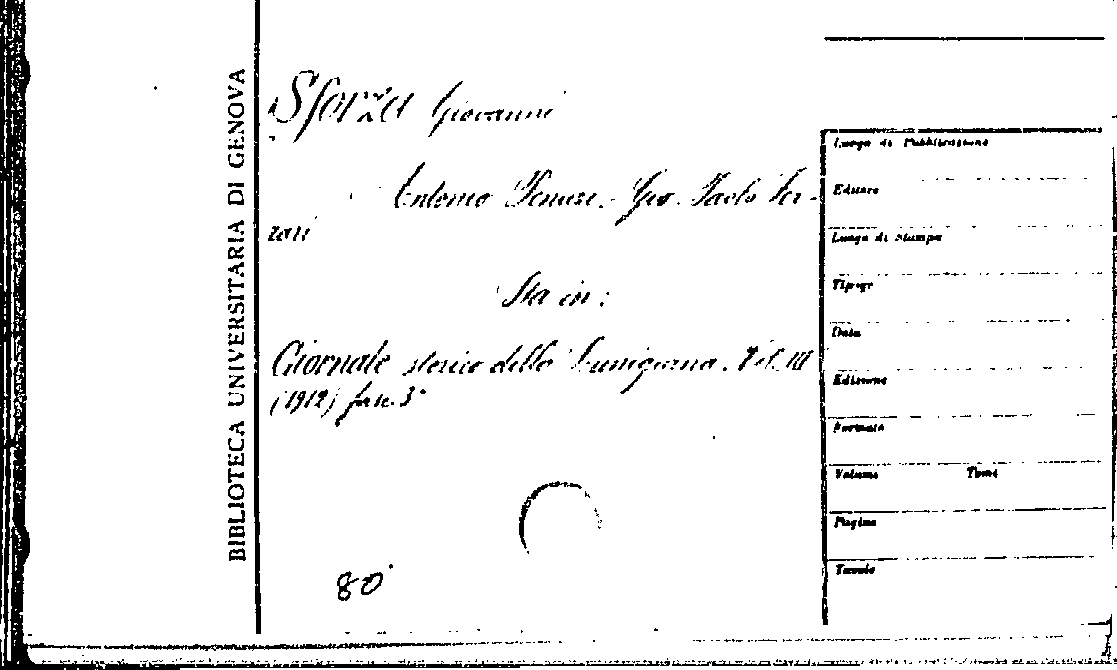 BIBLIOTECA UNIVERSITARIA DI GENOVA
Sforza Giovanni
Antonio Gio. Paolo Fer-
rari
Sta in:
Giornale storico della Lunigiana. Vol. III
(1912) fasc. 3°
80
Luogo di Pubblicazione
Editore
Luogo di Stampa
Tipogr
Data
Edizione
Formato
Volume Tomi
Pagine
Tavole